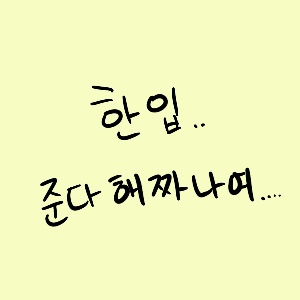 한입..
준다해짜나여....